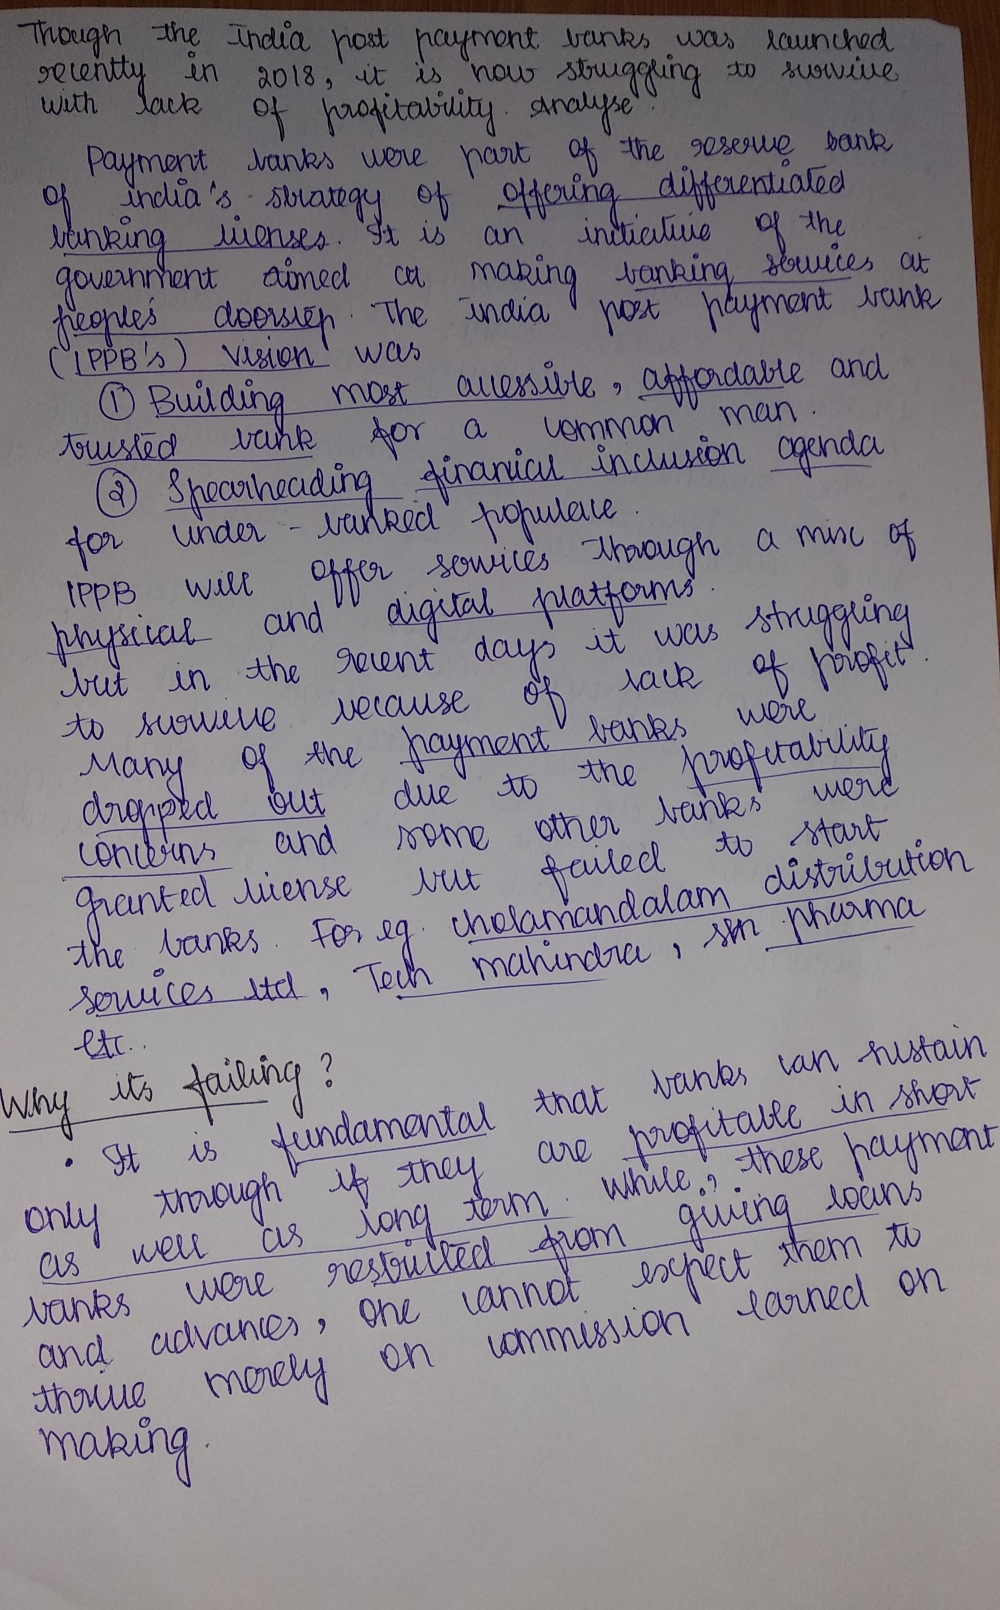 Though the India post payment banks was launched
recently in 2018, it is now struggling to survive
with lack of profitability. Analyse.
Payment banks were part of the reserve bank
of india's strategy of offering differentiated
banking lienses. It is an initiative of the
government aimed at making banking services at
people's doorstep. The india post payment bank
(IPPB's) vision was
① Building most accessible, affordable and
trusted bank for a common man.
② Spearheading financial inclusion agenda
for under-banked populace.
IPPB will offer services through a misc of
physical and digital platforms.
but in the recent days it was struggling
to survive because of lack of profit.
Many of the payment banks were
dropped out due to the profitability
concerns and some other banks were
granted liense but failed to start
the banks. For eg. cholamandalam distribution
services ltd, Tech mahindra, sun pharma
etc..
Why its failing?
• It is fundamental that banks can sustain
only through if they are profitable in short
as well as long term. While, these payment
banks were restricted from giving loans
and advances, one cannot expect them to
thrive merely on commission earned on
making.